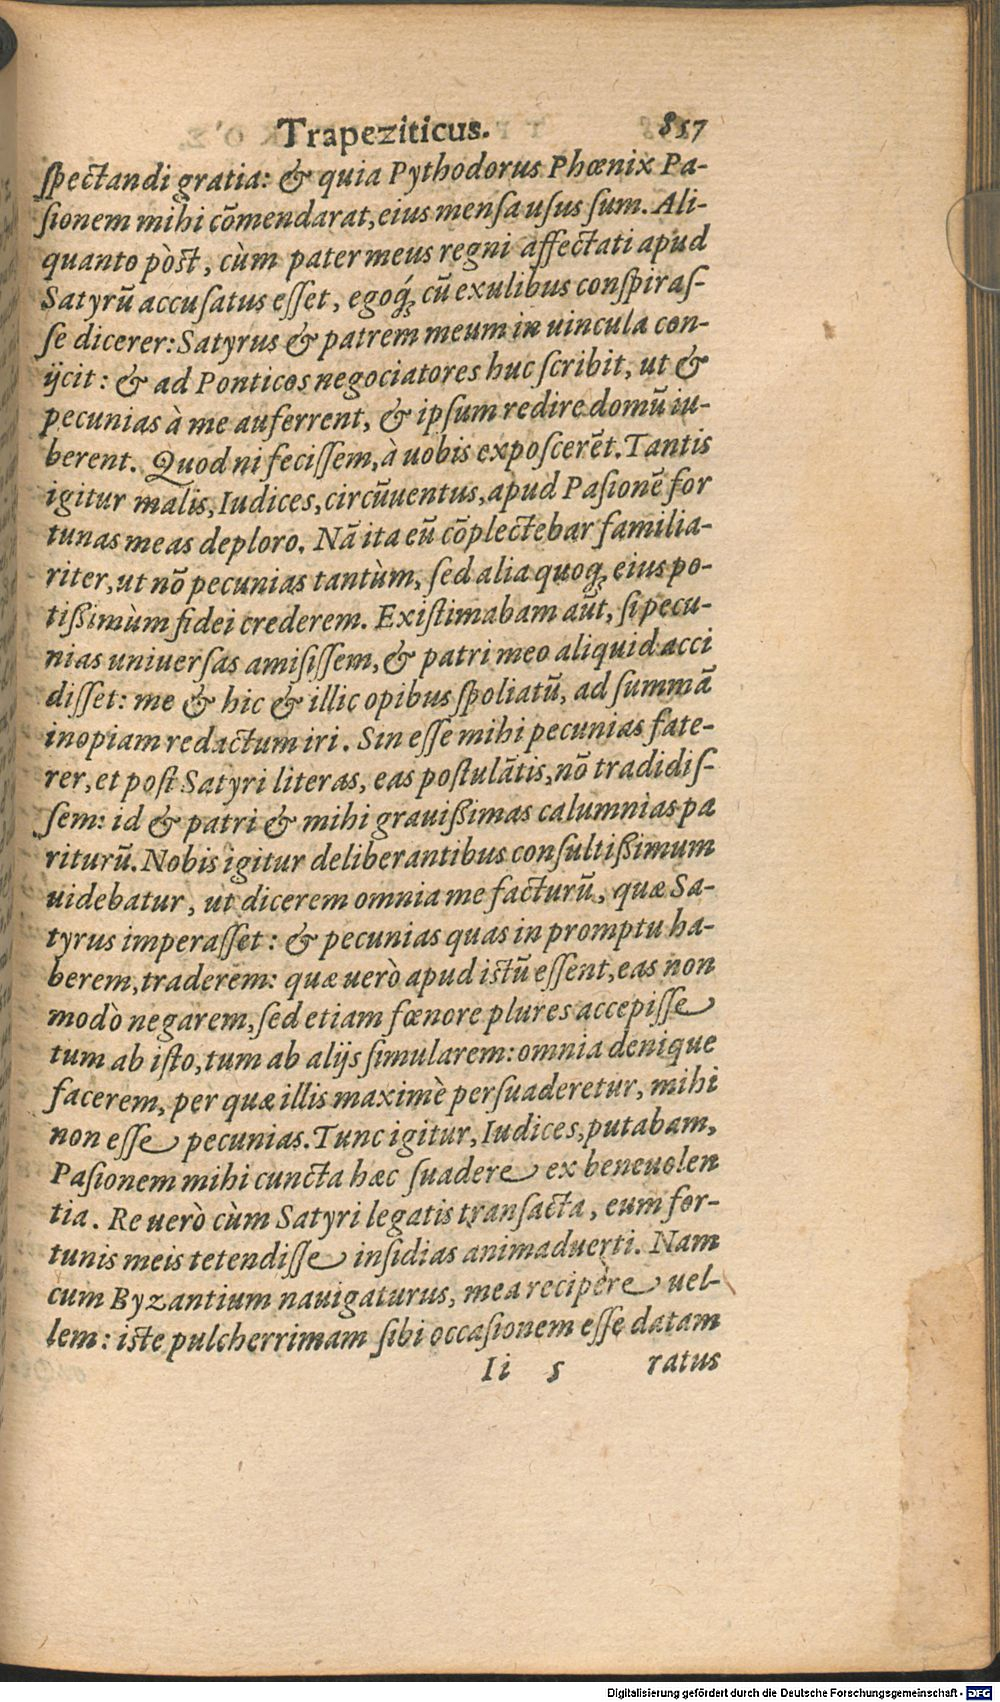 Trapeziticus. 857
ſpectandi gratia: & quia Pythodorus Phœnix Pa-
ſionem mihi cõmendarat, eius menſa uſus ſum. Ali-
quanto pòst, cùm pater meus regni affectati apud
Satyrũ accuſatus eſſet, egoq́; cũ exulibus conſpiraſ-
ſe dicerer: Satyrus & patrem meum in uincula con-
ijcit: & ad Ponticos negociatores huc ſcribit, ut &
pecunias à me auferrent, & ipſum redire domũ iu-
berent. Quod ni feciſſem, à uobis expoſcerẽt. Tantis
igitur malis, Iudices, circũuentus, apud Paſionẽ for
tunas meas deploro. Nã ita eũ cõplectebar familia-
riter, ut nõ pecunias tantùm, ſed alia quoq; eius po-
tißimùm fidei crederem. Existimabam aũt, ſi pecu-
nias uniuerſas amiſiſſem, & patri meo aliquid acci
diſſet: me & hic & illic opibus ſpoliatũ, ad ſummã
inopiam redactum iri. Sin eſſe mihi pecunias fate-
rer, et post Satyri literas, eas poſtulãtis, nõ tradidiſ-
ſem: id & patri & mihi grauißimas calumnias pa
riturũ. Nobis igitur deliberantibus conſultißimum
uidebatur, ut dicerem omnia me facturũ, quæ Sa-
tyrus imperaſſet: & pecunias quas in promptu ha-
berem, traderem: quæ uerò apud istũ eſſent, eas non
modò negarem, ſed etiam fœnore plures accepiſſe
tum ab iſto, tum ab alijs ſimularem: omnia denique
facerem, per quæ illis maximè perſuaderetur, mihi
non eſſe pecunias. Tunc igitur, Iudices, putabam,
Paſionem mihi cuncta hæc ſuadere ex beneuolen
tia. Re uerò cùm Satyri legatis tranſacta, eum for-
tunis meis tetendiſſe inſidias animaduerti. Nam
cum Byzantium nauigaturus, mea recipere uel-
lem: iste pulcherrimam ſibi occaſionem eſſe datam
Ii 5 ratus
Digitalisierung gefördert durch die Deutsche Forschungsgemeinschaft - DFG